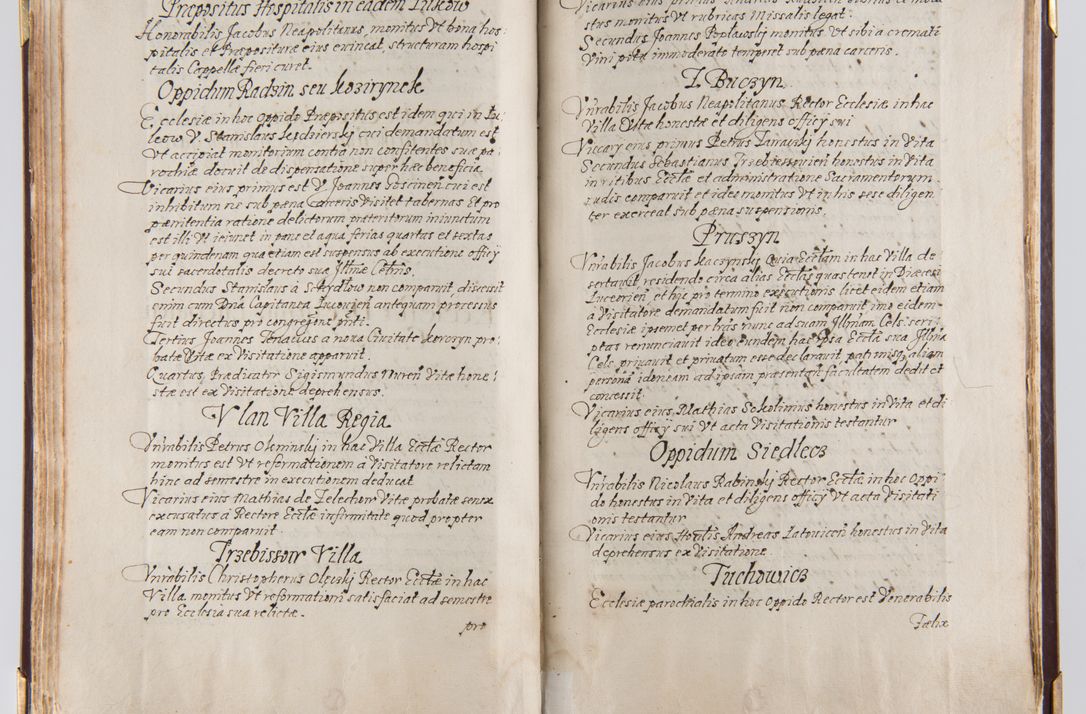 Præpositus Hospitalis in eadem Lukow
Honorabilis Jacobus Neapolitanus, monitus Vt bona hos:
pitalis et Præpositurae eius evincat, structuram hospi
talis Cappellæ fieri curet.
Oppidum Radzin seu Kozirynek
Ecclesiæ in hoc Oppido Præpositus est idem qui in Lu,
kow V. Stanislaus cui demandatum est
Vt accipiat monitorium contra non confitentes suæ pa,
rochiæ docuit de dispensatione super hæc beneficia,
Vicarius eius primus est V. Joannes Goscinen cui est
inhibitum ne sub pæna Carceris Visitet tabernas Et pro
pænitentia ratione delictorum præteritorum iniunctum
est illi Vt ieiunet in pane et aqua ferias quartas et sextas
per quindenam qua etiam est suspensus ab executione officy
sui sacerdotalis decreto suæ Illmæ Celtnis.
Secundus Stanislaus à Schydlow non comparuit discessit
enim cum Dna Capitanea Lucovien antequam processus
fuit directus pro congregone pnti.
Tertius Joannes Tenacius a nova Civitate Korczyn pro,
batæ Vitæ ex Visitatione apparuit.
Quartus, Prædicator Sigismundus Vitæ hone,
stæ est ex Visitatione deprehensus.
Vlan Villa Regia
Vnrabilis Petrus Okminskj in hac Villa Ecclæ Rector
monitus est Vt reformationem a Visitatore relictam
hinc ad semestre in executionem deducat
Vicarius eius Mathias de Zelechow Vitæ probatæ senex
excusatus a Rectore Ecclæ infirmitate quod propter
eam non comparuit.
Trzebissow Villa
Vnrabilis Christopherus Olęckj Rector Ecclæ in hac
Villa monitus Vt reformationi satisfaciat ad semestre
pro Ecclesia sua relictæ.
pro
Vicarius eius primus
stus monitus Vt rubricas Missalis legat.
Secundus Joannes Poplawskj monitus Vt sibi a cremati
Vini potu immoderato temperet sub pæna carceris.
Z. Buczyn
Vnrabilis Jacobus Neapolitanus Rector Ecclesiæ in hac
Villa Vitæ honestæ et diligens officy sui
Vicary eius primus Petrus Tarauskj honestus in Vita
Secundus Sebastianus Trzebiessovien honestus in Vita
in ritibus Ecclæ et administratione Sacramentorum
rudis comparuit et ideo monitus Vt in his sese diligen,
ter exerceat sub pæna suspensionis.
Pruszyn
Vnrabilis Jacobus Kaczynskj Quia Ecclam in hac Villa de
sertavit, residendo circa alias Ecclas quas tenet in Diæcesi
Luceorien, et huc pro termino executionis licet eidem etiam
a Visitatore demandatum fuit non comparuit imo eidem
Ecclesiæ ipsemet per has nunc ad suam Illmam Cels: scri,
ptas renunciavit ideo eundem hac ipsa Eccla sua Illma
Cels: privavit et privatum esse declaravit patrmis aliam
personā idoneam ad ipsam præsentan facultatem dedit et
concessit.
Vicarius eius, Mathias Sokolinius honestus in Vita et di
ligens officy sui Vt acta Visitationis testantur
Oppidum Siedlecz
Vnrabilis Nicolaus Rabinskj Rector Ecclæ in hoc Oppi
do honestus in Vita et diligens officy Vt acta Visitati
onis testantur
Vicarius eius Andreas Latovicen honestus in Vita
deprehensus ex Visitatione.
Tuchowicz
Ecclesiæ parochialis in hoc Oppido Rector est Venerabilis
Fælix